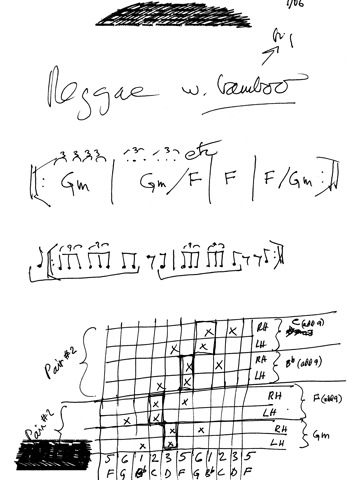 1/06
Reggae w. bamboo
3 3 3 3 3 3 etc
Gm | Gm/F | F | F/Gm
RH C(add 9)
LH
RH Bb(add 9)
LH
RH F(add9)
LH
RH Gm
LH
Pair #2
Pair #2
5 6 1 2 3 5 6 1 2 3 5
F G Bb C D F G Bb C D F